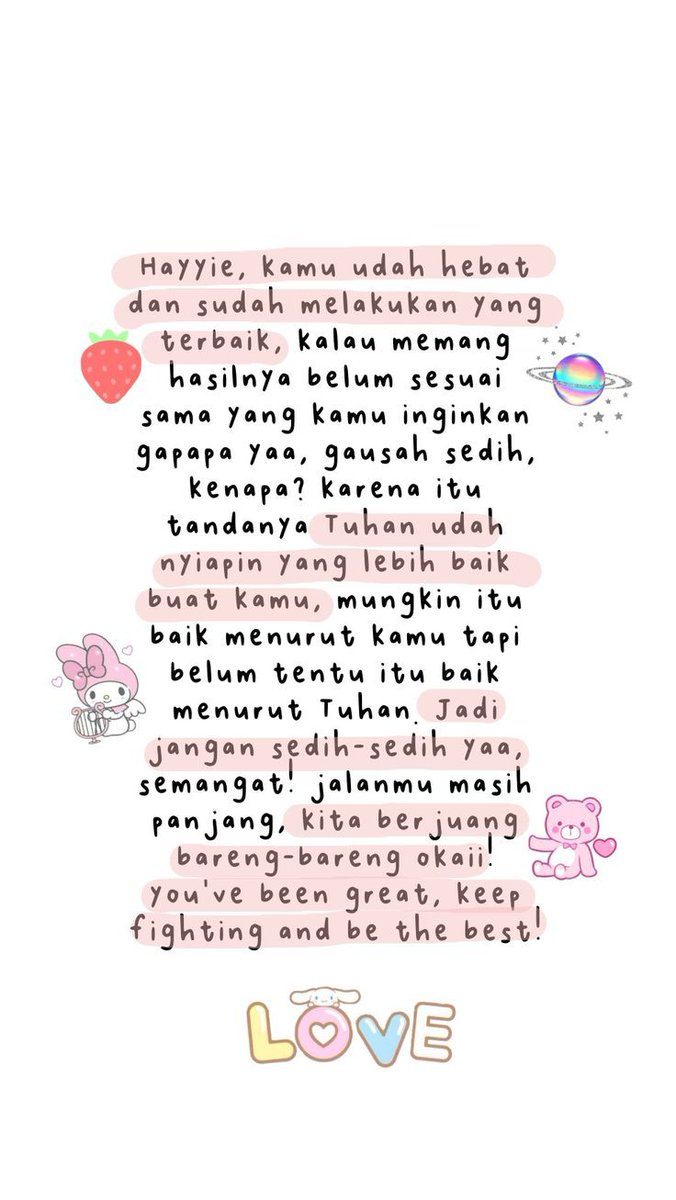 Hayyie, kamu udah hebat
dan sudah melakukan yang
terbaik, kalau memang
hasilnya belum sesuai
sama yang kamu inginkan
gapapa yaa, gausah sedih,
kenapa? karena itu
tandanya Tuhan udah
nyiapin yang lebih baik
buat kamu, mungkin itu
baik menurut kamu tapi
belum tentu itu baik
menurut Tuhan. Jadi
jangan sedih-sedih yaa,
semangat! jalanmu masih
panjang, kita berjuang
bareng-bareng okaii!
you've been great, keep
fighting and be the best!
LOVE